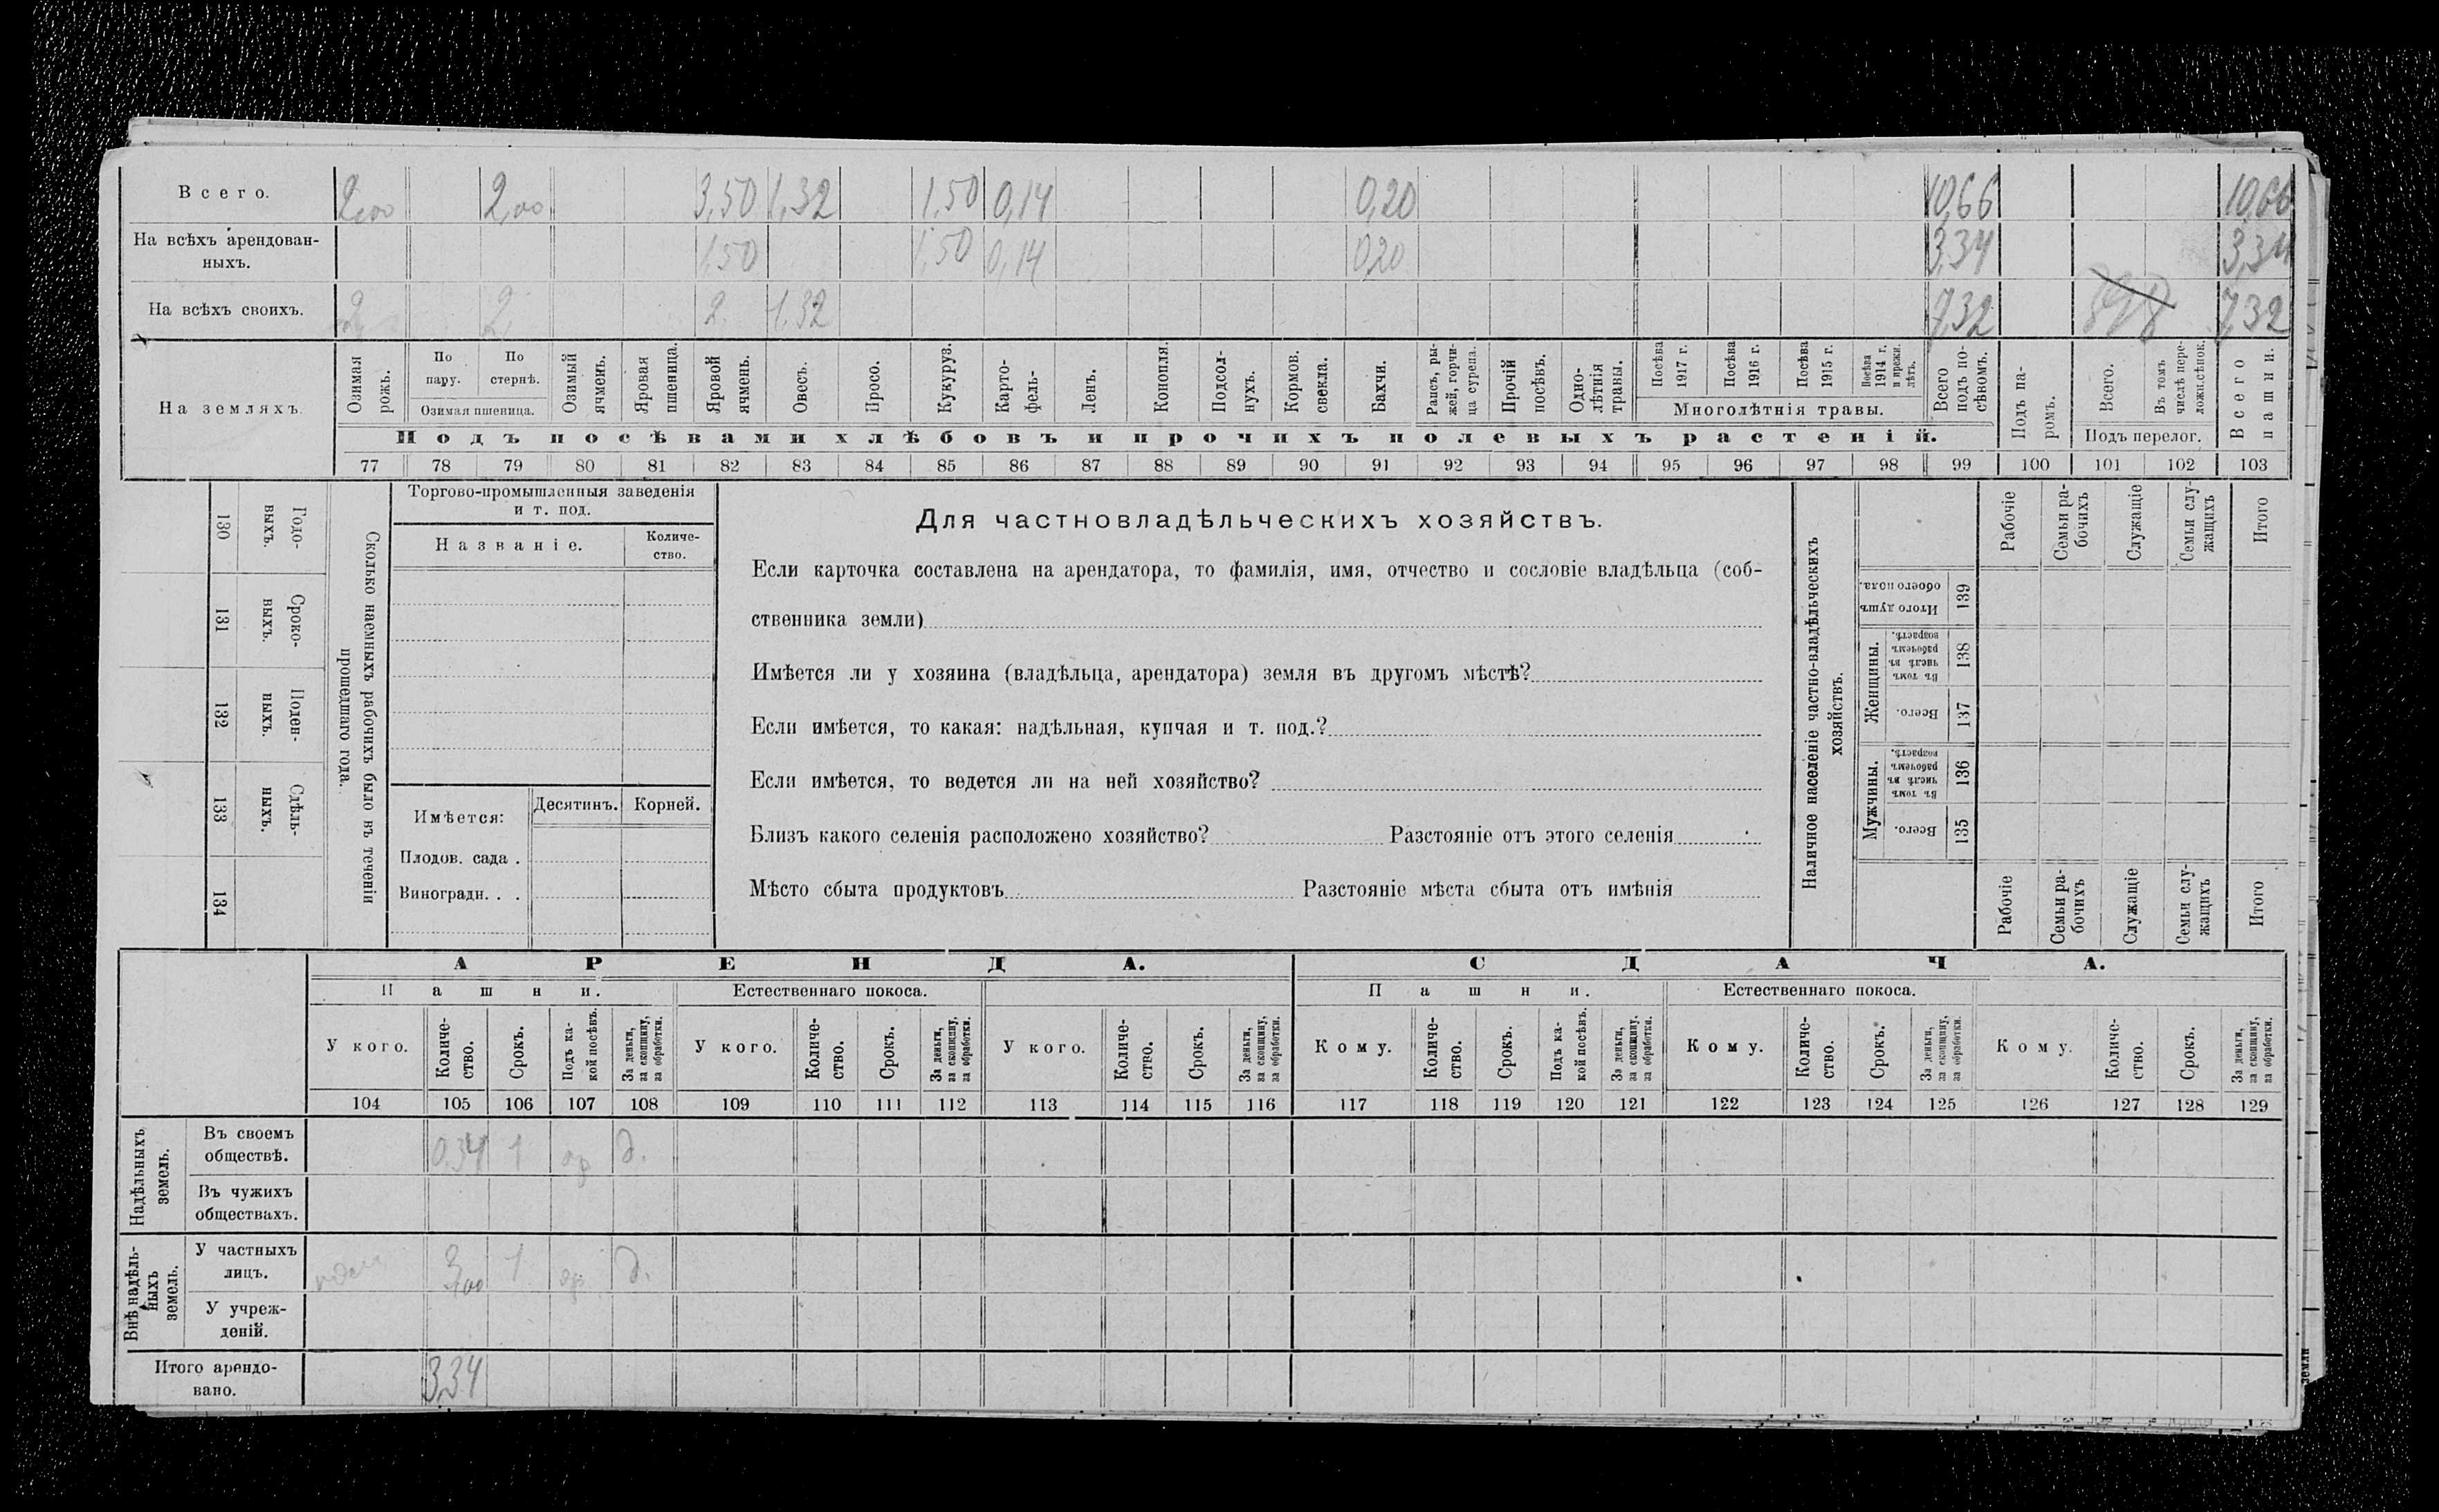 Всего. 2,00 2,00 3,50 1,32 1,50 0,14 0,20 10,66 10,66
На всѣхъ арендован-
ныхъ. 1,50 1,50 0,14 0,20 3,34 3,34
На всѣхъ своихъ. 2 2 2. 1,32 7,32 7,32
На земляхъ.
Озимая рожь.
По пару.
По стернѣ.
Озимая пшеница.
Озимый ячмень.
Яровая пшеница.
Яровой ячмень.
Овесъ.
Просо.
Кукуруз.
Карто-
фель-
Ленъ.
Конопля.
Подсол-
нухъ.
Кормов.
свекла.
Бахчи.
Рапсъ, ры-
жей, горчи-
ца сурепа.
Прочій
посѣвъ.
Одно-
лѣтнія
травы.
Посѣва
1917 г.
Посѣва
1916 г.
Посѣва
1915 г.
Посѣва
1914 г.
и прежн.
лѣтъ.
Многолѣтнія травы.
Всего
подъ по-
сѣвомъ.
Подъ па-
ромъ.
Всего.
Въ томъ
числѣ пере-
ложн.сѣнок.
Подъ перелог.
Всего
пашни.
Подъ посѣвами хлѣбовъ и прочихъ полевыхъ растеній.
77 78 79 80 81 82 83 84 85 86 87 88 89 90 91 92 93 94 95 96 97 98 99 100 101 102 103
130 Годо-
выхъ.
131 Сроко-
выхъ.
132 Поден-
ныхъ.
133 Сдѣль-
ныхъ.
134
Сколько наемныхъ рабочихъ было въ теченіи
прошедшаго года.
Торгово-промышленныя заведенія
и т. под.
Названіе.
Количе-
ство.
Имѣется:
Десятинъ. Корней.
Плодов. сада .
Виноградн. . .
Для частновладѣльческихъ хозяйствъ.
Если карточка составлена на арендатора, то фамилія, имя, отчество и сословіе владѣльца (соб-
ственника земли)
Имѣется ли у хозяина (владѣльца, арендатора) земля въ другомъ мѣстѣ?
Если имѣется, то какая: надѣльная, купчая и т. под.?
Если имѣется, то ведется ли на ней хозяйство?
Близъ какого селенія расположено хозяйство? Разстояніе отъ этого селенія
Мѣсто сбыта продуктовъ Разстояніе мѣста сбыта отъ имѣнія
Наличное населеніе частно-владѣльческихъ
хозяйствъ.
Итого душъ
обоего пола. 139
Женщины.
Въ томъ
числѣ въ
рабочемъ
возрастѣ. 138
Всего. 137
Мужчины.
Въ томъ
числѣ въ
рабочемъ
возрастѣ. 136
Всего. 135
Рабочіе
Семьи ра-
бочихъ
Служащіе
Семьи слу-
жащихъ
Итого
Рабочіе
Семьи ра-
бочихъ
Служащіе
Семьи слу-
жащихъ
Итого
АРЕНДА. СДАЧА.
Пашни. Естественнаго покоса. Пашни. Естественнаго покоса.
У кого.
Количе-
ство.
Срокъ.
Подъ ка-
кой посѣвъ.
За деньги,
за скопщину,
за обработки.
У кого.
Количе-
ство.
Срокъ.
За деньги,
за скопщину,
за обработки.
У кого.
Количе-
ство.
Срокъ.
За деньги,
за скопщину,
за обработки.
Кому.
Количе-
ство.
Срокъ.
Подъ ка-
кой посѣвъ.
За деньги,
за скопщину,
за обработки.
Кому.
Количе-
ство.
Срокъ.
За деньги,
за скопщину,
за обработки.
Кому.
Количе-
ство.
Срокъ.
За деньги,
за скопщину,
за обработки.
104 105 106 107 108 109 110 111 112 113 114 115 116 117 118 119 120 121 122 123 124 125 126 127 128 129
Надѣльныхъ
земель.
Въ своемъ
обществѣ. 0,34 1 яр д.
Въ чужихъ
обществахъ.
Внѣ надѣль-
ныхъ
земель.
У частныхъ
лицъ. 3,00 1 яр. д.
У учреж-
деній.
Итого арендо-
вано. 3,34
земли